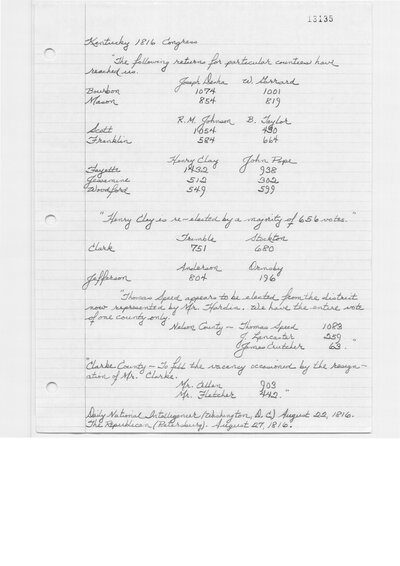 13135
Kentucky 1816 Congress
"The following returns for particular counties have
reached us.
Joseph Desha W. Garrard
Bourbon 1074 1001
Mason 854 819
R. M. Johnson B. Taylor
Scott 1054 490
Franklin 584 664
Henry Clay John Pope
Fayette 1432 938
Jessamine 512 302
Woodford 549 599
"Henry Clay is re-elected by a majority of 656 votes."
Trumble Stockton
Clark 751 680
Anderson Ormsby
Jefferson 804 196
"Thomas Speed appears to be elected from the district
now represented by Mr. Hardin. We have the entire vote
of one county only.
Nelson County - Thomas Speed 1083
J. Lancaster 259
James Crutcher 63."
"Clarke County - To fill the vacancy occasioned by the resign-
ation of Mr. Clarke.
Mr. Allan 903
Mr. Fletcher 442."
Daily National Intelligencer (Washington, D.C.) August 22, 1816.
The Republican (Petersburg). August 27, 1816.